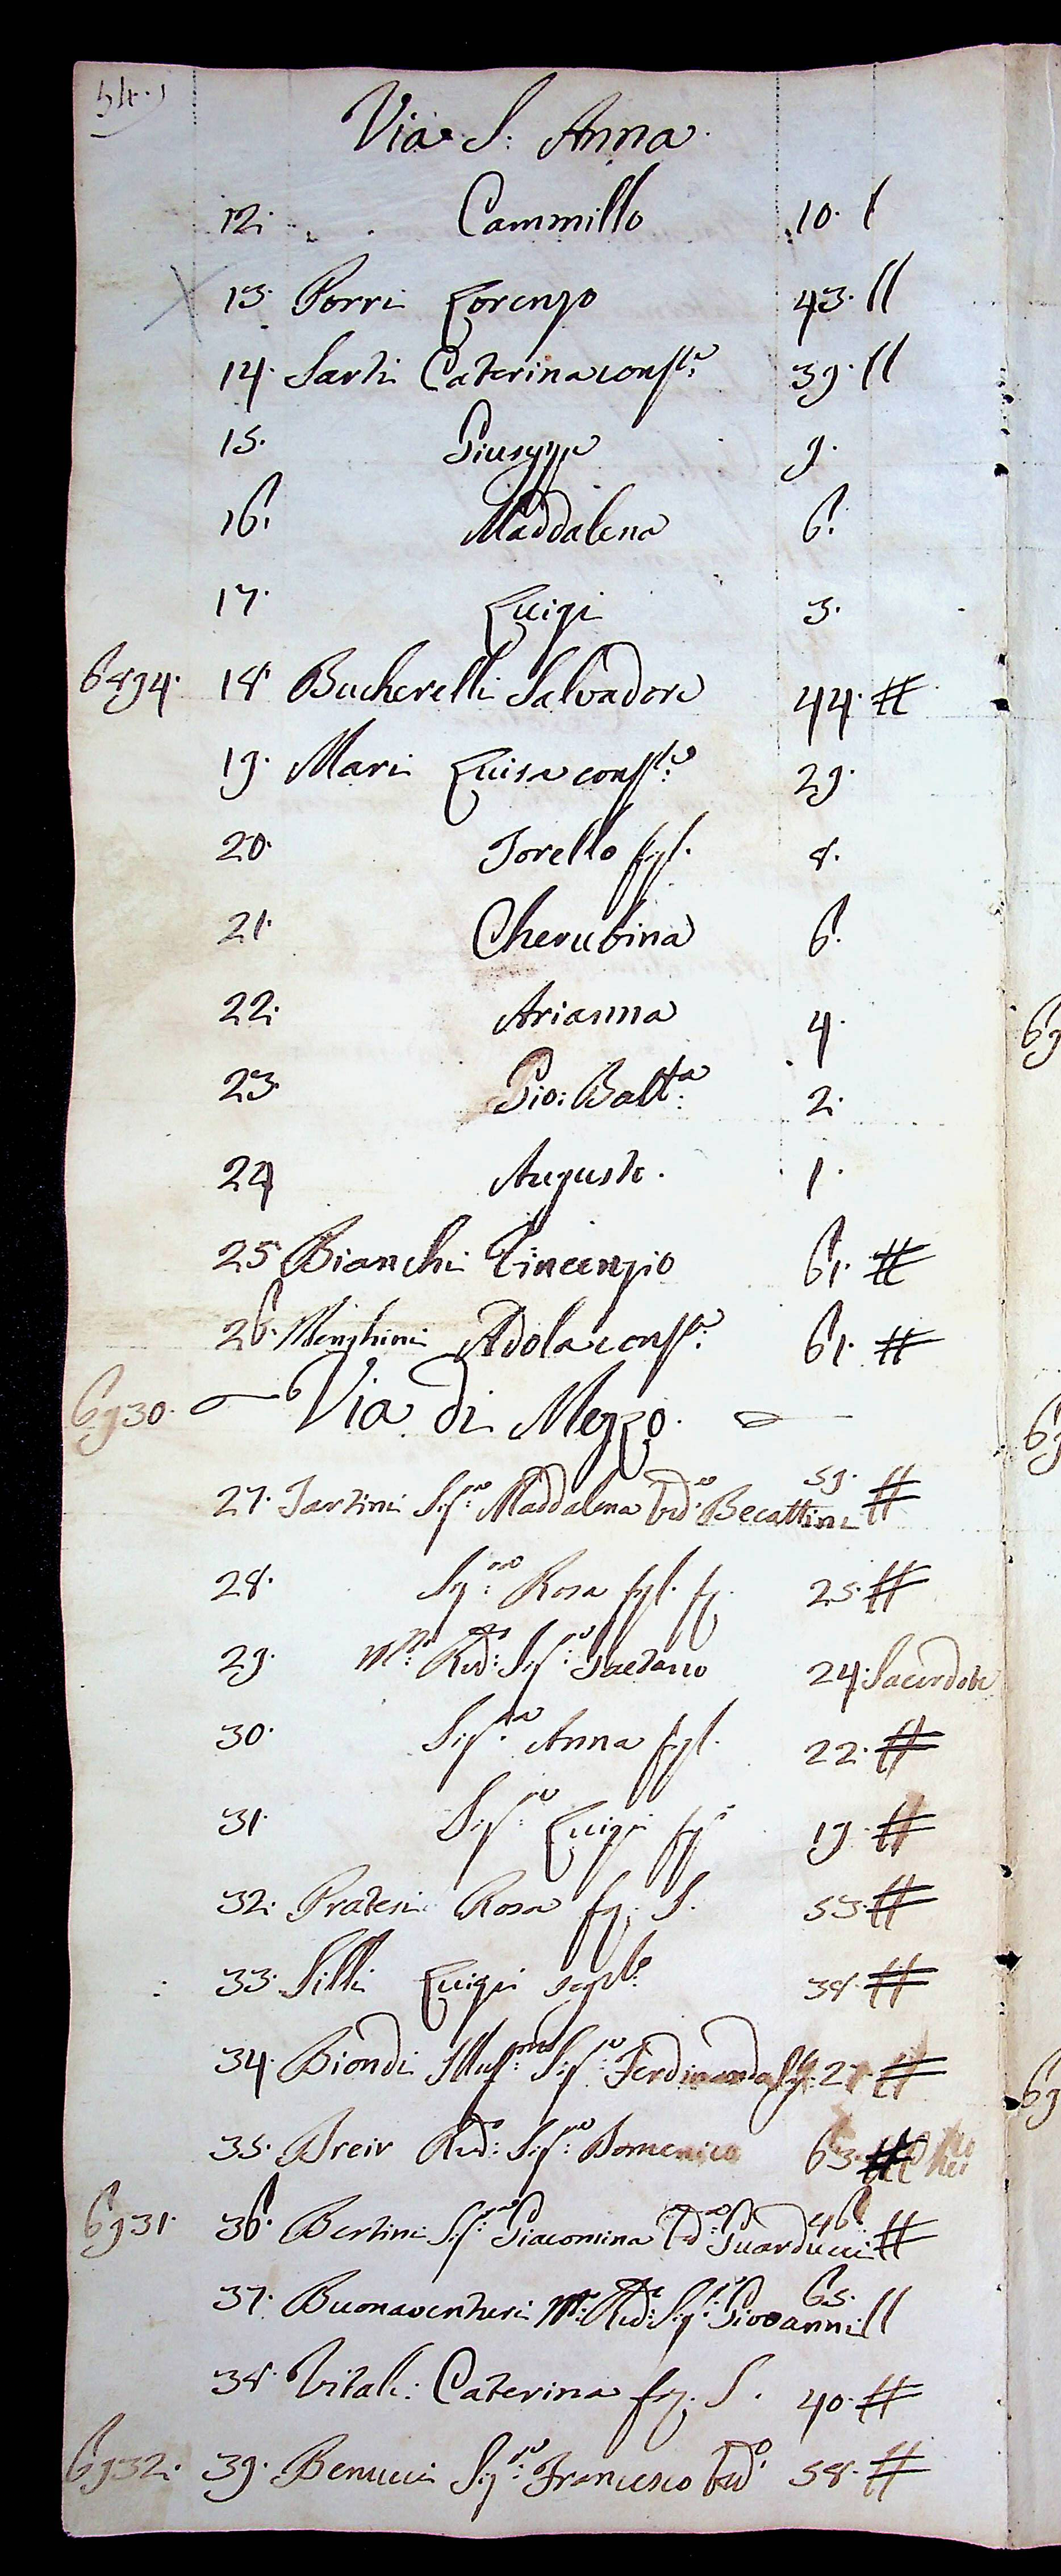 54.
Via S: Anna.
12: Cammillo 10. l
13. Porri Lorenzo 43. ll
14. Sarti Caterina cons:te 39. ll
15. Giuseppe 9.
16. Maddalena 6.
17. Luigi 3.
6894. 18 Bucherelli Salvadore 44. #
19. Mari Luisa cons:te 29.
20. Torello figl. 8.
21. Cherubina 6.
22. Arianna 4.
23 Gio: Batt:a 2.
24 Auguste. 1.
25 Bianchi Vincenzio 61. #
26. Menghini Adola cons:e 61. #
6930. Via di Mezzo.
27. Tartini Sig:ra Maddalena Ved:a Becattini 59. #
28. Sig:ra Rosa figl. 25. #
29. M:to Red:o Sig:r Gaetano 24. Sacerdote
30. Sig:ra Anna figl. 22. #
31. Sig:r Luigi fig 19. #
32. Pratesi Rosa S. 53. #
33. Silli Luigi 38. #
34. Biondi Illus:mo Sig:r Ferdinando 27 #
35. Red: Sig:r Domenico 63. #
6931. 36. Bertini Sig:ra Giacomina Ved:a Guarducci 46. #
37. Buonaventuri M:to Red: Sig:r Giovanni 65. ll
38. Vitali: Caterina S. 40. #
6932. 39. Benucci Sig:r Francesco Ved:o 58. #